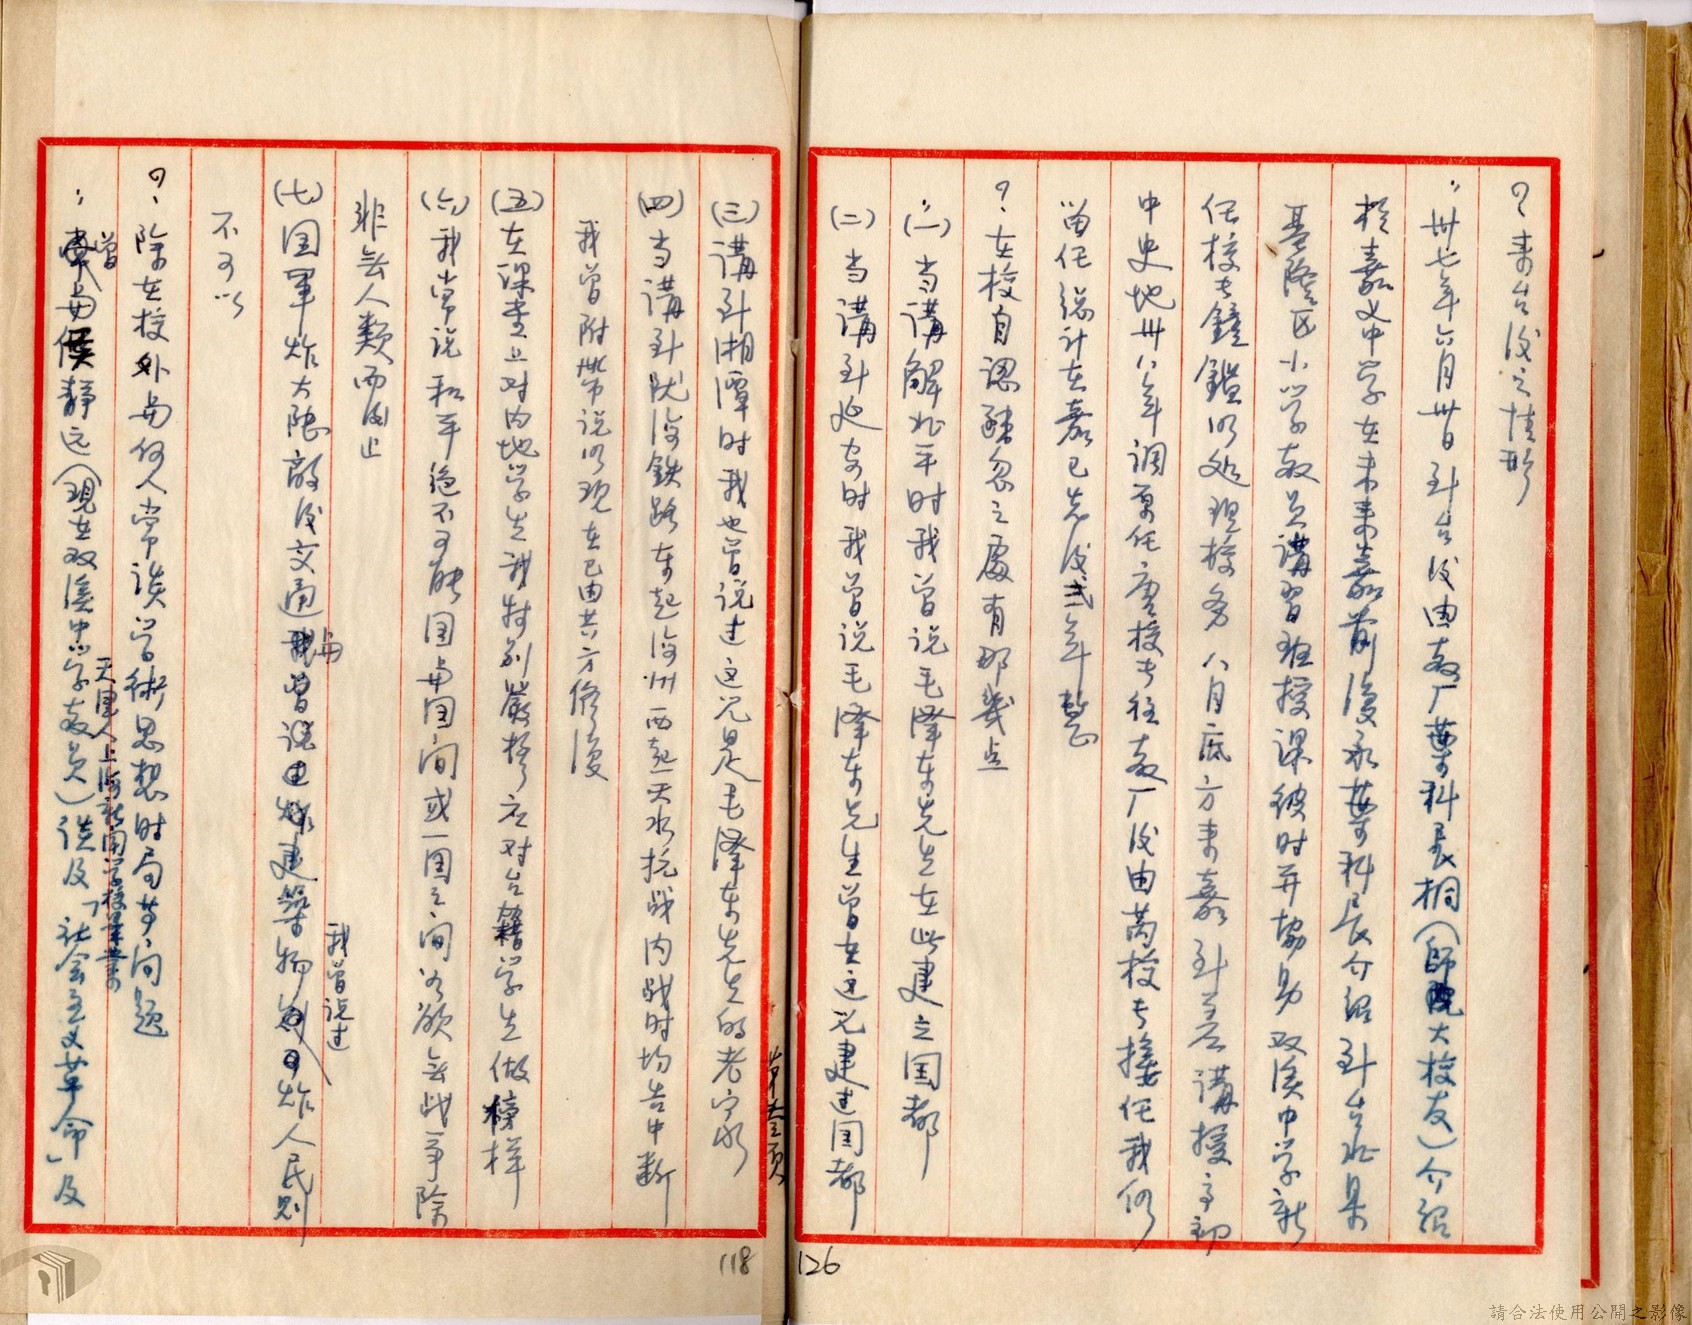 ?、来台後之情形
：卅七年六月卅日到台後由教厂葉科長桐（師院大校友）介紹
於嘉义中学在未来嘉前復承葉科長介紹到台北县
基隆区小学教员講習班授課彼时并協助双溪中学新
任校长鐘鑑以処理校务八月底方来嘉到差講授高初
中史地卅八年調原任唐校长往教厂後由萬校长接任我仍
留任総计在嘉已先後弍年整
?、在校自認疎忽之處有那幾点
：(一)当講解北平时我曾说毛泽东先生在此建立国都
(二)当講到延安时我曾说毛泽东先生曾在这兒建过国都
(三)講到湘潭时我也曾说过这兒是毛泽东先生的老家
第六頁
(四)当講到陇海鉄路东起海州西起天水抗战内战时均告中断
我曾附带说以现在已由共方修復
(五)在课堂上对内地学生我特别嚴格应对台籍学生做榜样
(六)我常说和平绝不可能国与国间或一国之间欲無战争除
非無人類而後止
我曾说过
(七)国軍炸大陸敵後交通与建築物则可炸人民则
不可以
?、除在校外与何人常谈学術思想时局等问题
天津人上海新闻学校毕業
：曾与侯静远（现在双溪中学教员）谈及「社会主义革命」及
118
126
請合法使用公開之影像